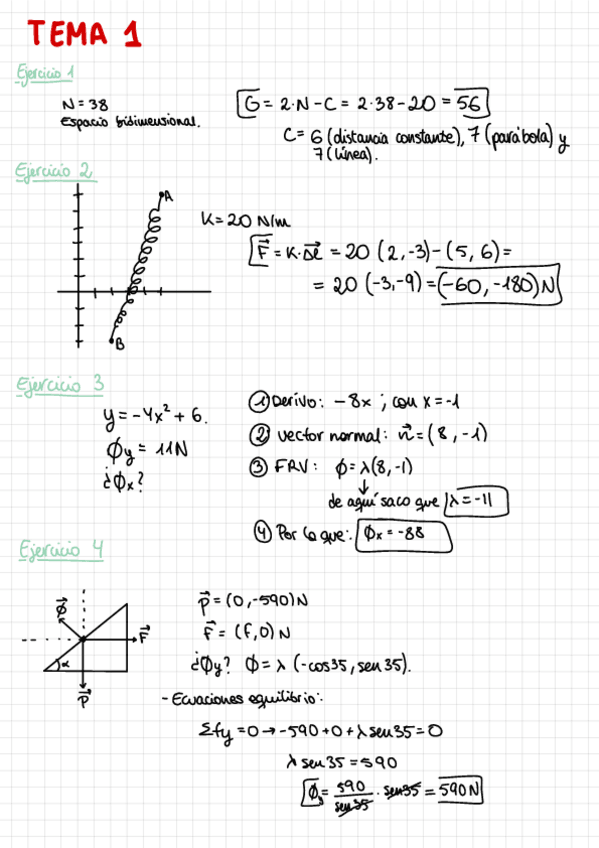 TEMA 1
Ejercicio 1
N = 38
Espacio bidimensional.
G = 2·N - C = 2·38 - 20 = 56
C = 6 (distancia constante), 7 (parábola) y
7 (línea).
Ejercicio 2
A
B
K = 20 N/m
F⃗ = K·Δℓ⃗ = 20 (2,-3) - (5, 6) =
= 20 (-3,-9) = (-60, -180) N
Ejercicio 3
y = -4x² + 6.
ϕy = 11N
¿ϕx?
① Derivo: -8x ; con x = -1
② vector normal: n⃗ = (8, -1)
③ FRV: ϕ = λ(8,-1)
↓
de aquí saco que λ = -11
④ Por lo que: ϕx = -88
Ejercicio 4
ϕ⃗
F⃗
α
P⃗
P⃗ = (0, -590) N
F⃗ = (F, 0) N
¿ϕy? ϕ = λ (-cos35, sen35).
- Ecuaciones equilibrio:
Σfy = 0 → -590 + 0 + λ sen35 = 0
λ sen35 = 590
ϕy = 590/sen35 · sen35 = 590 N